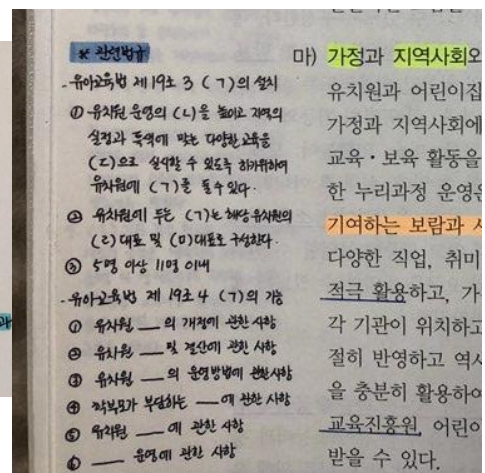 * 관련법규
- 유아교육법 제19조 3 (ㄱ)의 설치
① 유치원 운영의 (ㄴ)을 높이고 지역의
실정과 특색에 맞는 다양한 교육을
(ㄷ)으로 실시할 수 있도록 하기위하여
유치원에 (ㄱ)를 둘수 있다.
② 유치원에 두는 (ㄱ)는 해당 유치원의
(ㄹ)대표 및 (ㅁ)대표로 구성한다.
③ 5명 이상 11명 이내
- 유아교육법 제 19조 4 (ㄱ)의 기능
① 유치원 ___의 개정에 관한 사항
② 유치원 ___ 및 결산에 관한 사항
③ 유치원 ___의 운영방법에 관한 사항
④ 학부모가 부담하는 ___에 관한 사항
⑤ 유치원 ___에 관한 사항
⑥ ___ 운영에 관한 사항
과
마) 가정과 지역사회와
유치원과 어린이집
가정과 지역사회에
교육·보육 활동을
한 누리과정 운영은
기여하는 보람과
다양한 직업, 취미
적극 활용하고, 가
각 기관이 위치하고
절히 반영하고 역사
을 충분히 활용하여
교육진흥원, 어린이
받을 수 있다.